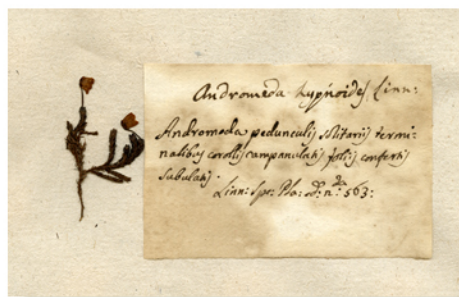 Andromeda hypnoides Linn:
Andromeda pedunculis solitariis termi-
nalibus corollis campanulatis foliis confertis
subulatis.
Linn: Spe: Pla: n: 563: